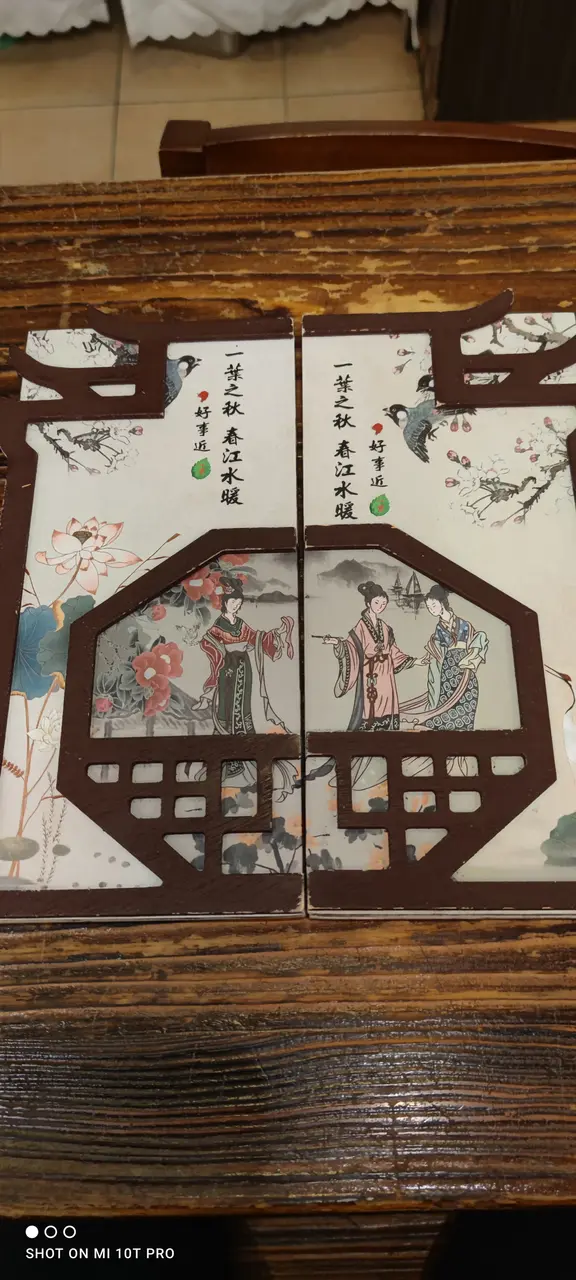 一葉之秋 春江水暖
好事近
一葉之秋 春江水暖
好事近
SHOT ON MI 10T PRO